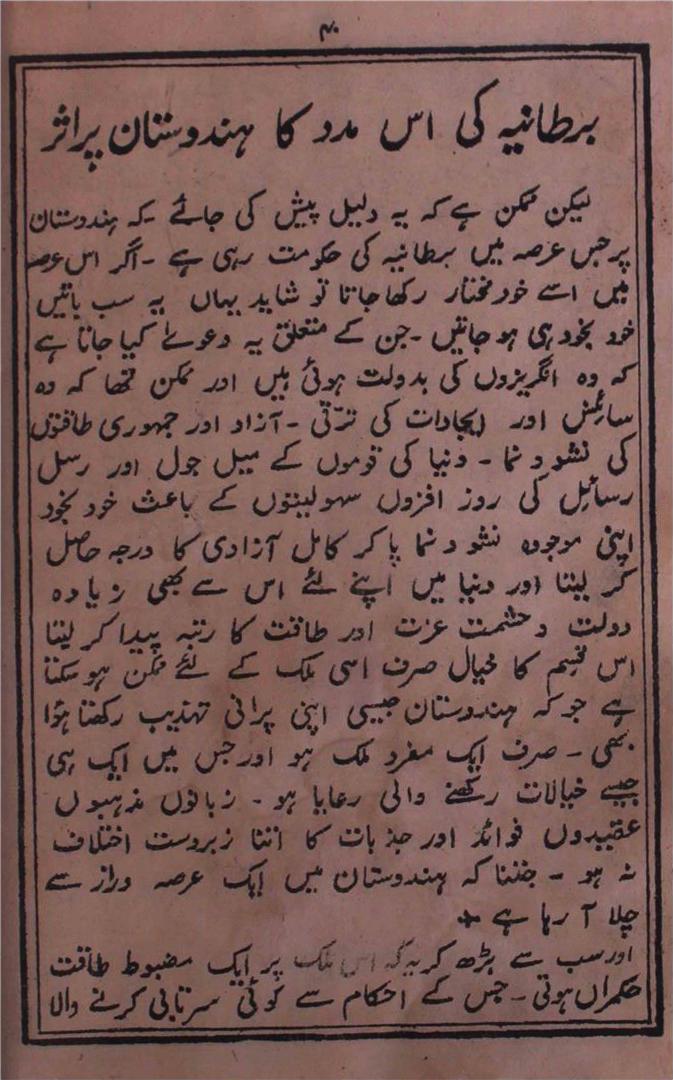 ۴۰
برطانیہ کی اس مدد کا ہندوستان پر اثر
لیکن ممکن ہے کہ یہ دلیل پیش کی جائے ۔کہ ہندوستان
پر جس عرصہ میں برطانیہ کی حکومت رہی ہے ۔اگر اس عرصہ
میں اسے خود مختار رکھا جاتا تو شاید یہاں یہ سب باتیں
خود بخود ہی ہو جاتیں ۔جن کے متعلق یہ دعوےٰ کیا جاتا ہے
کہ وہ انگریزوں کی بدولت ہوئی ہیں اور ممکن تھا کہ وہ
سائینس اور ایجادات کی ترقی ۔آزاد اور جمہوری طاقتوں
کی نشو و نما ۔ دنیا کی قوموں کے میل جول اور رسل
رسائیل کی روز افزوں سہولیتوں کے باعث خود بخود
اپنی موجودہ نشو و نما پا کر کامل آزادی کا درجہ حاصل
کر لیتا اور دنیا میں اپنے لئے اس سے بھی زیادہ
دولت و حشمت عزت اور طاقت کا رتبہ پیدا کر لیتا
اس قسم کا خیال صرف اسی ملک کے لئے ممکن ہو سکتا
ہے جو کہ ہندوستان جیسی اپنی پرانی تہذیب رکھتا ہؤا
بھی ۔ صرف ایک مفرد ملک ہو اور جس میں ایک ہی
جیسے خیالات رکھنے والی رعایا ہو ۔ زبانوں مذہبوں
عقیدوں فوائد اور جذبات کا اتنا زبروست اختلاف
نہ ہو ۔ جتنا کہ ہندوستان میں ایک عرصہ دراز سے
چلا آ رہا ہے +
اور سب سے بڑھ کر یہ کہ اس ملک پر ایک مضبوط طاقت
حکمراں ہوتی ۔ جس کے احکام سے کوئی سرتابی کرنے والا